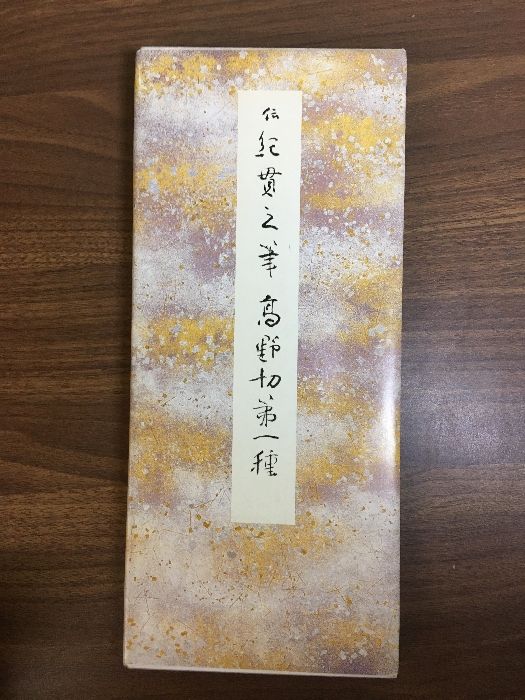 伝紀貫之筆 高野切第一種